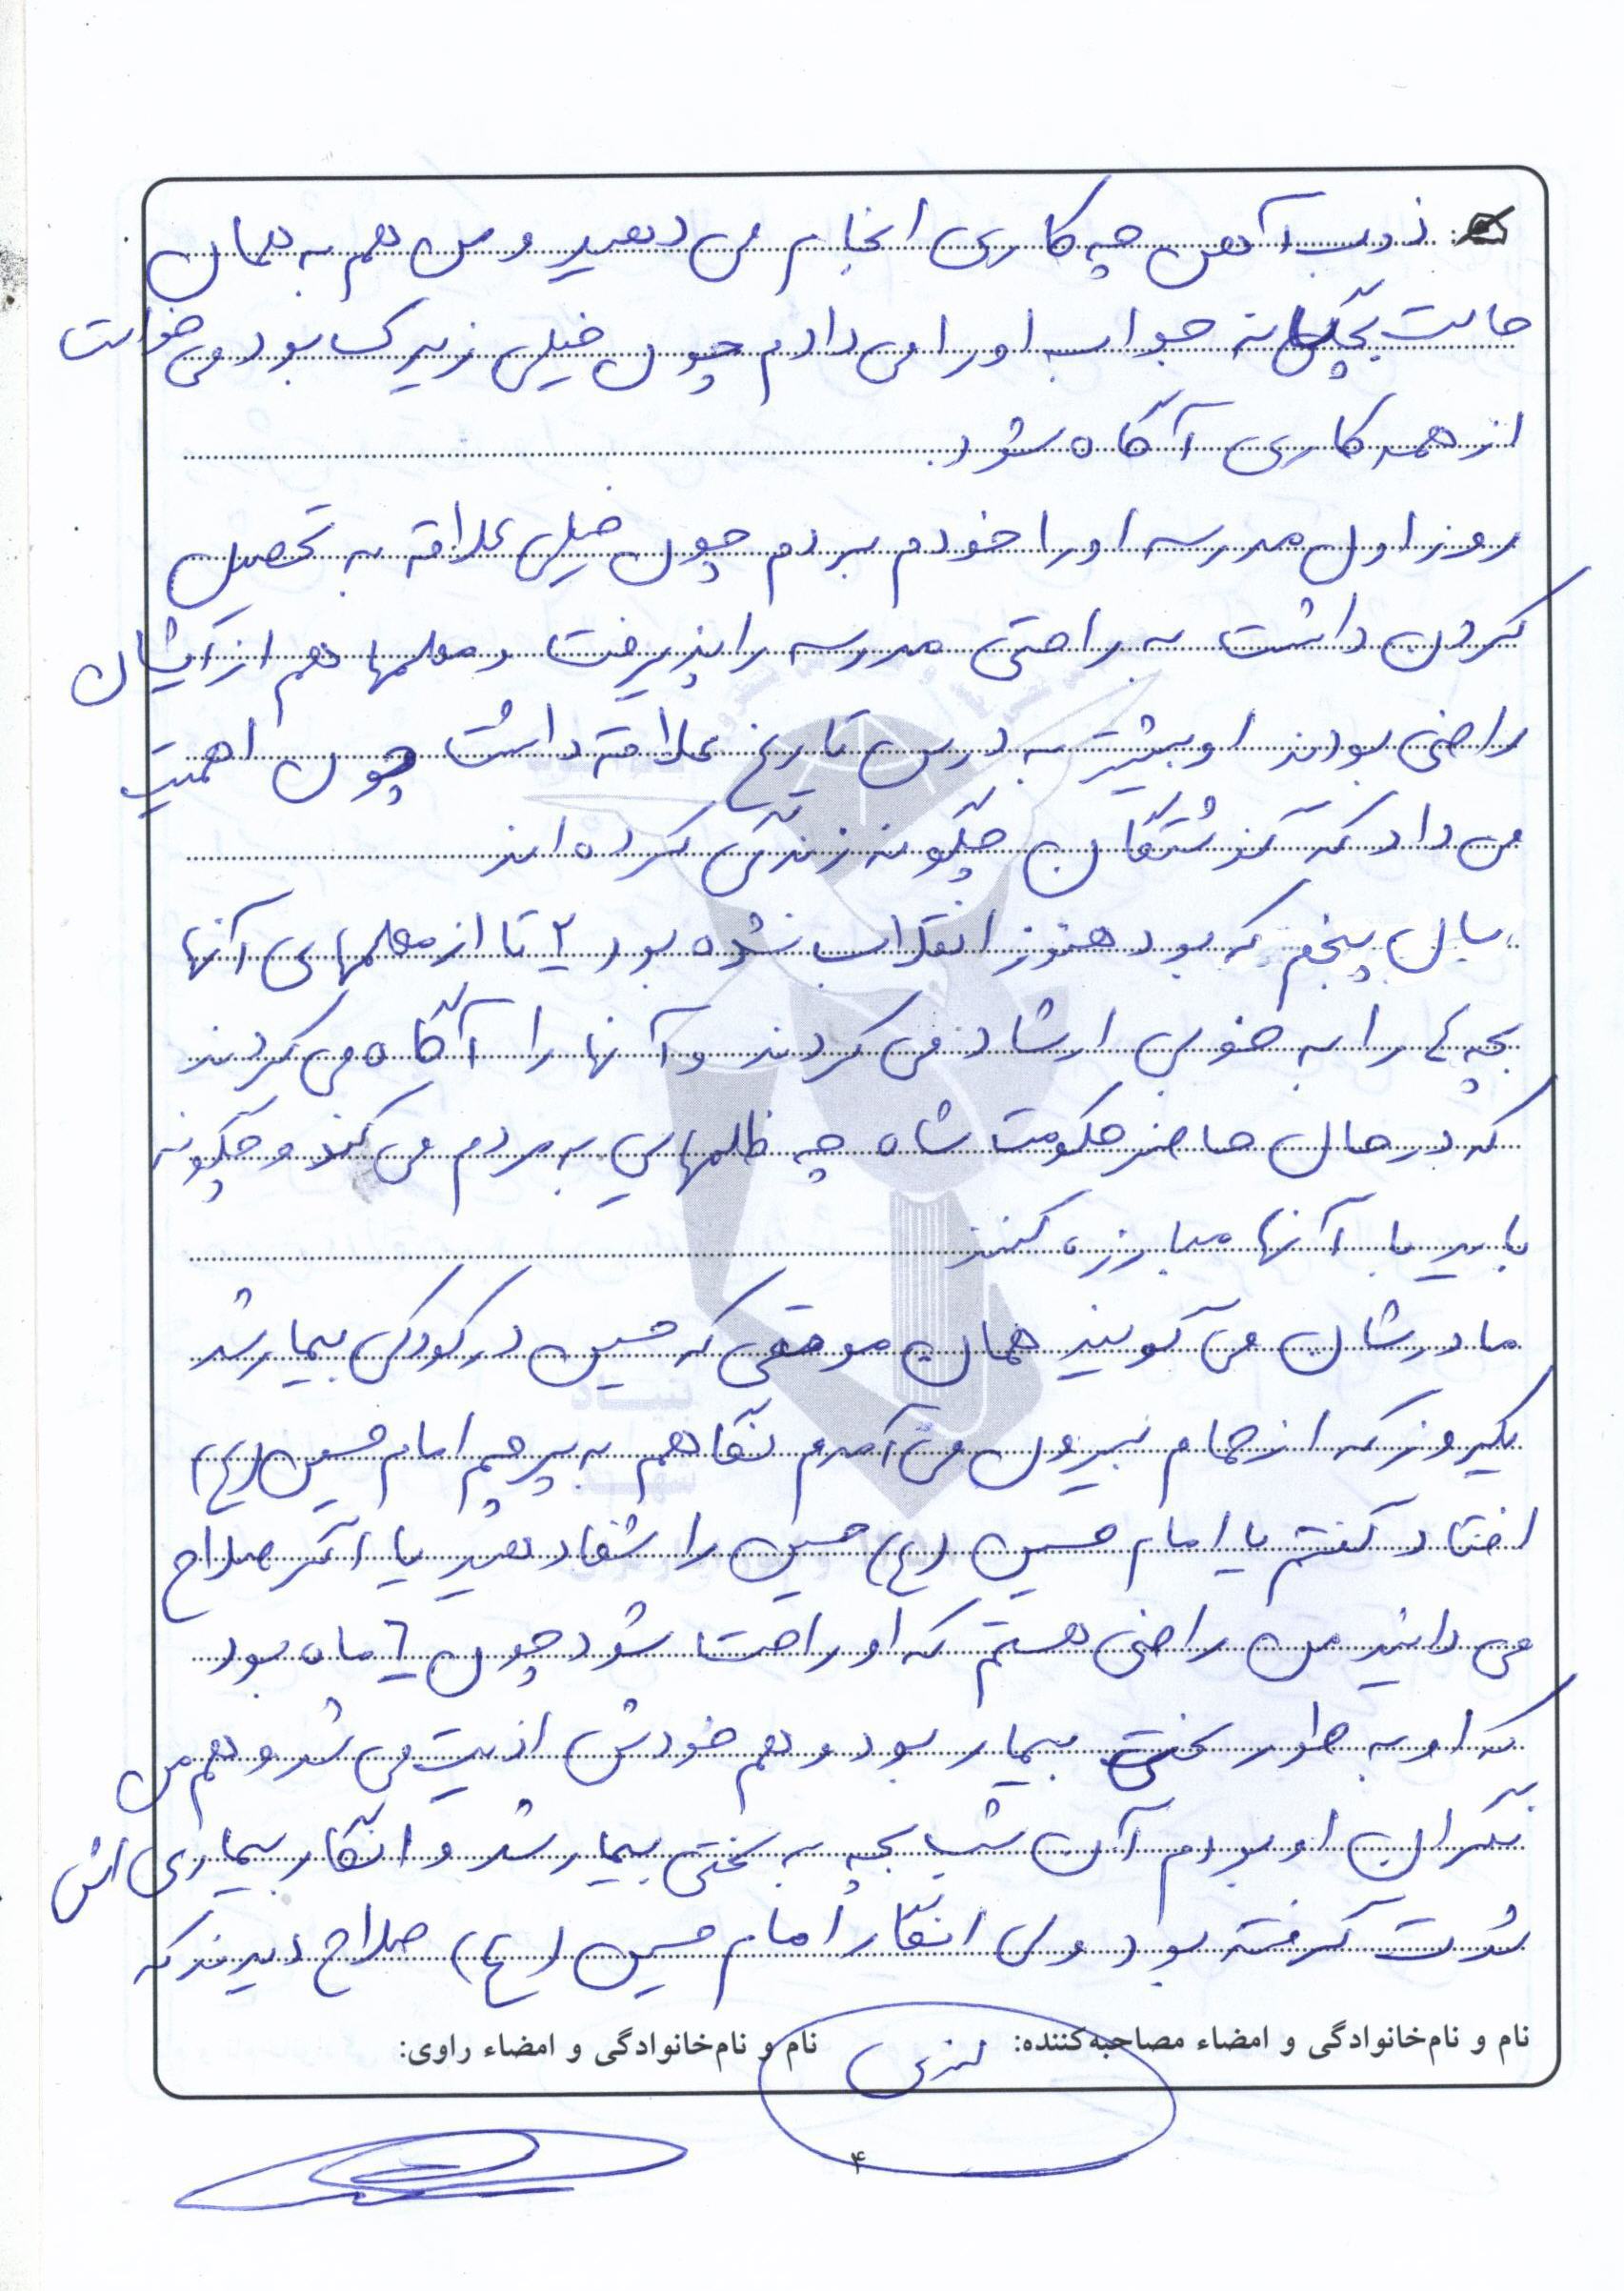 ذوب آهن چه کاری انجام می دهید و من هم به همان
حالت بچگانه جواب او را می دادم چون خیلی زیرک بود می خواست
از همه کاری آگاه شود.
روز اول مدرسه او را خودم بردم چون خیلی علاقه به تحصیل
کردن داشت به راحتی مدرسه را پذیرفت و معلمها هم از ایشان
راضی بودند او بیشتر به درس تاریخ علاقه داشت چون اهمیت
می داد که گذشتگان چگونه زندگی کرده اند
سال پنجم که بود هنوز انقلاب نشده بود ۲ تا از معلمهای آنها
بچه ها را به خوبی ارشاد می کردند و آنها را آگاه می کردند
که در حال حاضر حکومت شاه چه ظلمهایی به مردم می کند و چگونه
باید با آنها مبارزه کنند
مادرشان می گویند همان موقعی که حسین در کودکی بیمار شد
یکروز که از حمام بیرون می آمدم نگاهم به پرچم امام حسین (ع)
افتاد گفتم یا امام حسین (ع) حسین را شفا دهید یا اگر صلاح
می دانید من راضی هستم که او راحت شود چون ۶ ماه بود
که او به طور سختی بیمار بود و هم خودش اذیت می شد و هم من
نگران او بودم آن شب بچه به سختی بیمار شد و انگار بیماری اش
شدت گرفته بود ولی انگار امام حسین (ع) صلاح دیدند که
نام و نام‌خانوادگی و امضاء مصاحبه‌کننده: نام و نام‌خانوادگی و امضاء راوی:
۴